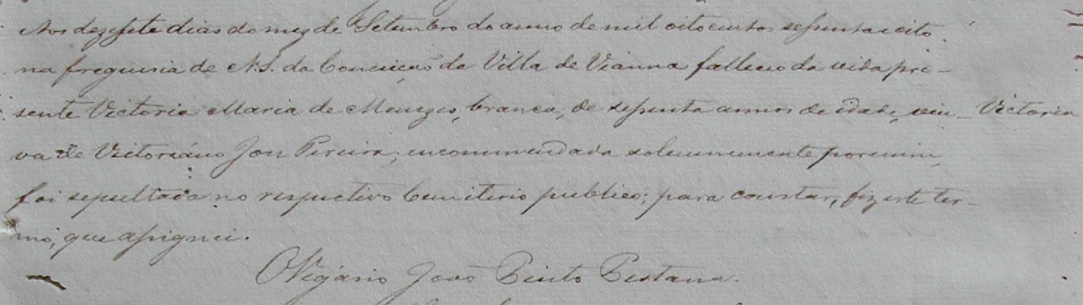 Aos dezesete dias do mez de Setembro do anno de mil oito centos sessenta e oito
na freguesia de N. S. da Conceição da Villa de Vianna falleceo da vida pre-
sente Victoria Maria de Menezes, branca, de sessenta annos de idade, viu-
Victoria
va de Victoriano José Pereira, encommendada solemnemente por mim,
foi sepultada no respectivo Cemiterio publico; para constar, fiz este ter-
mo, que assignei.
O Vigario João Pinto Pestana.